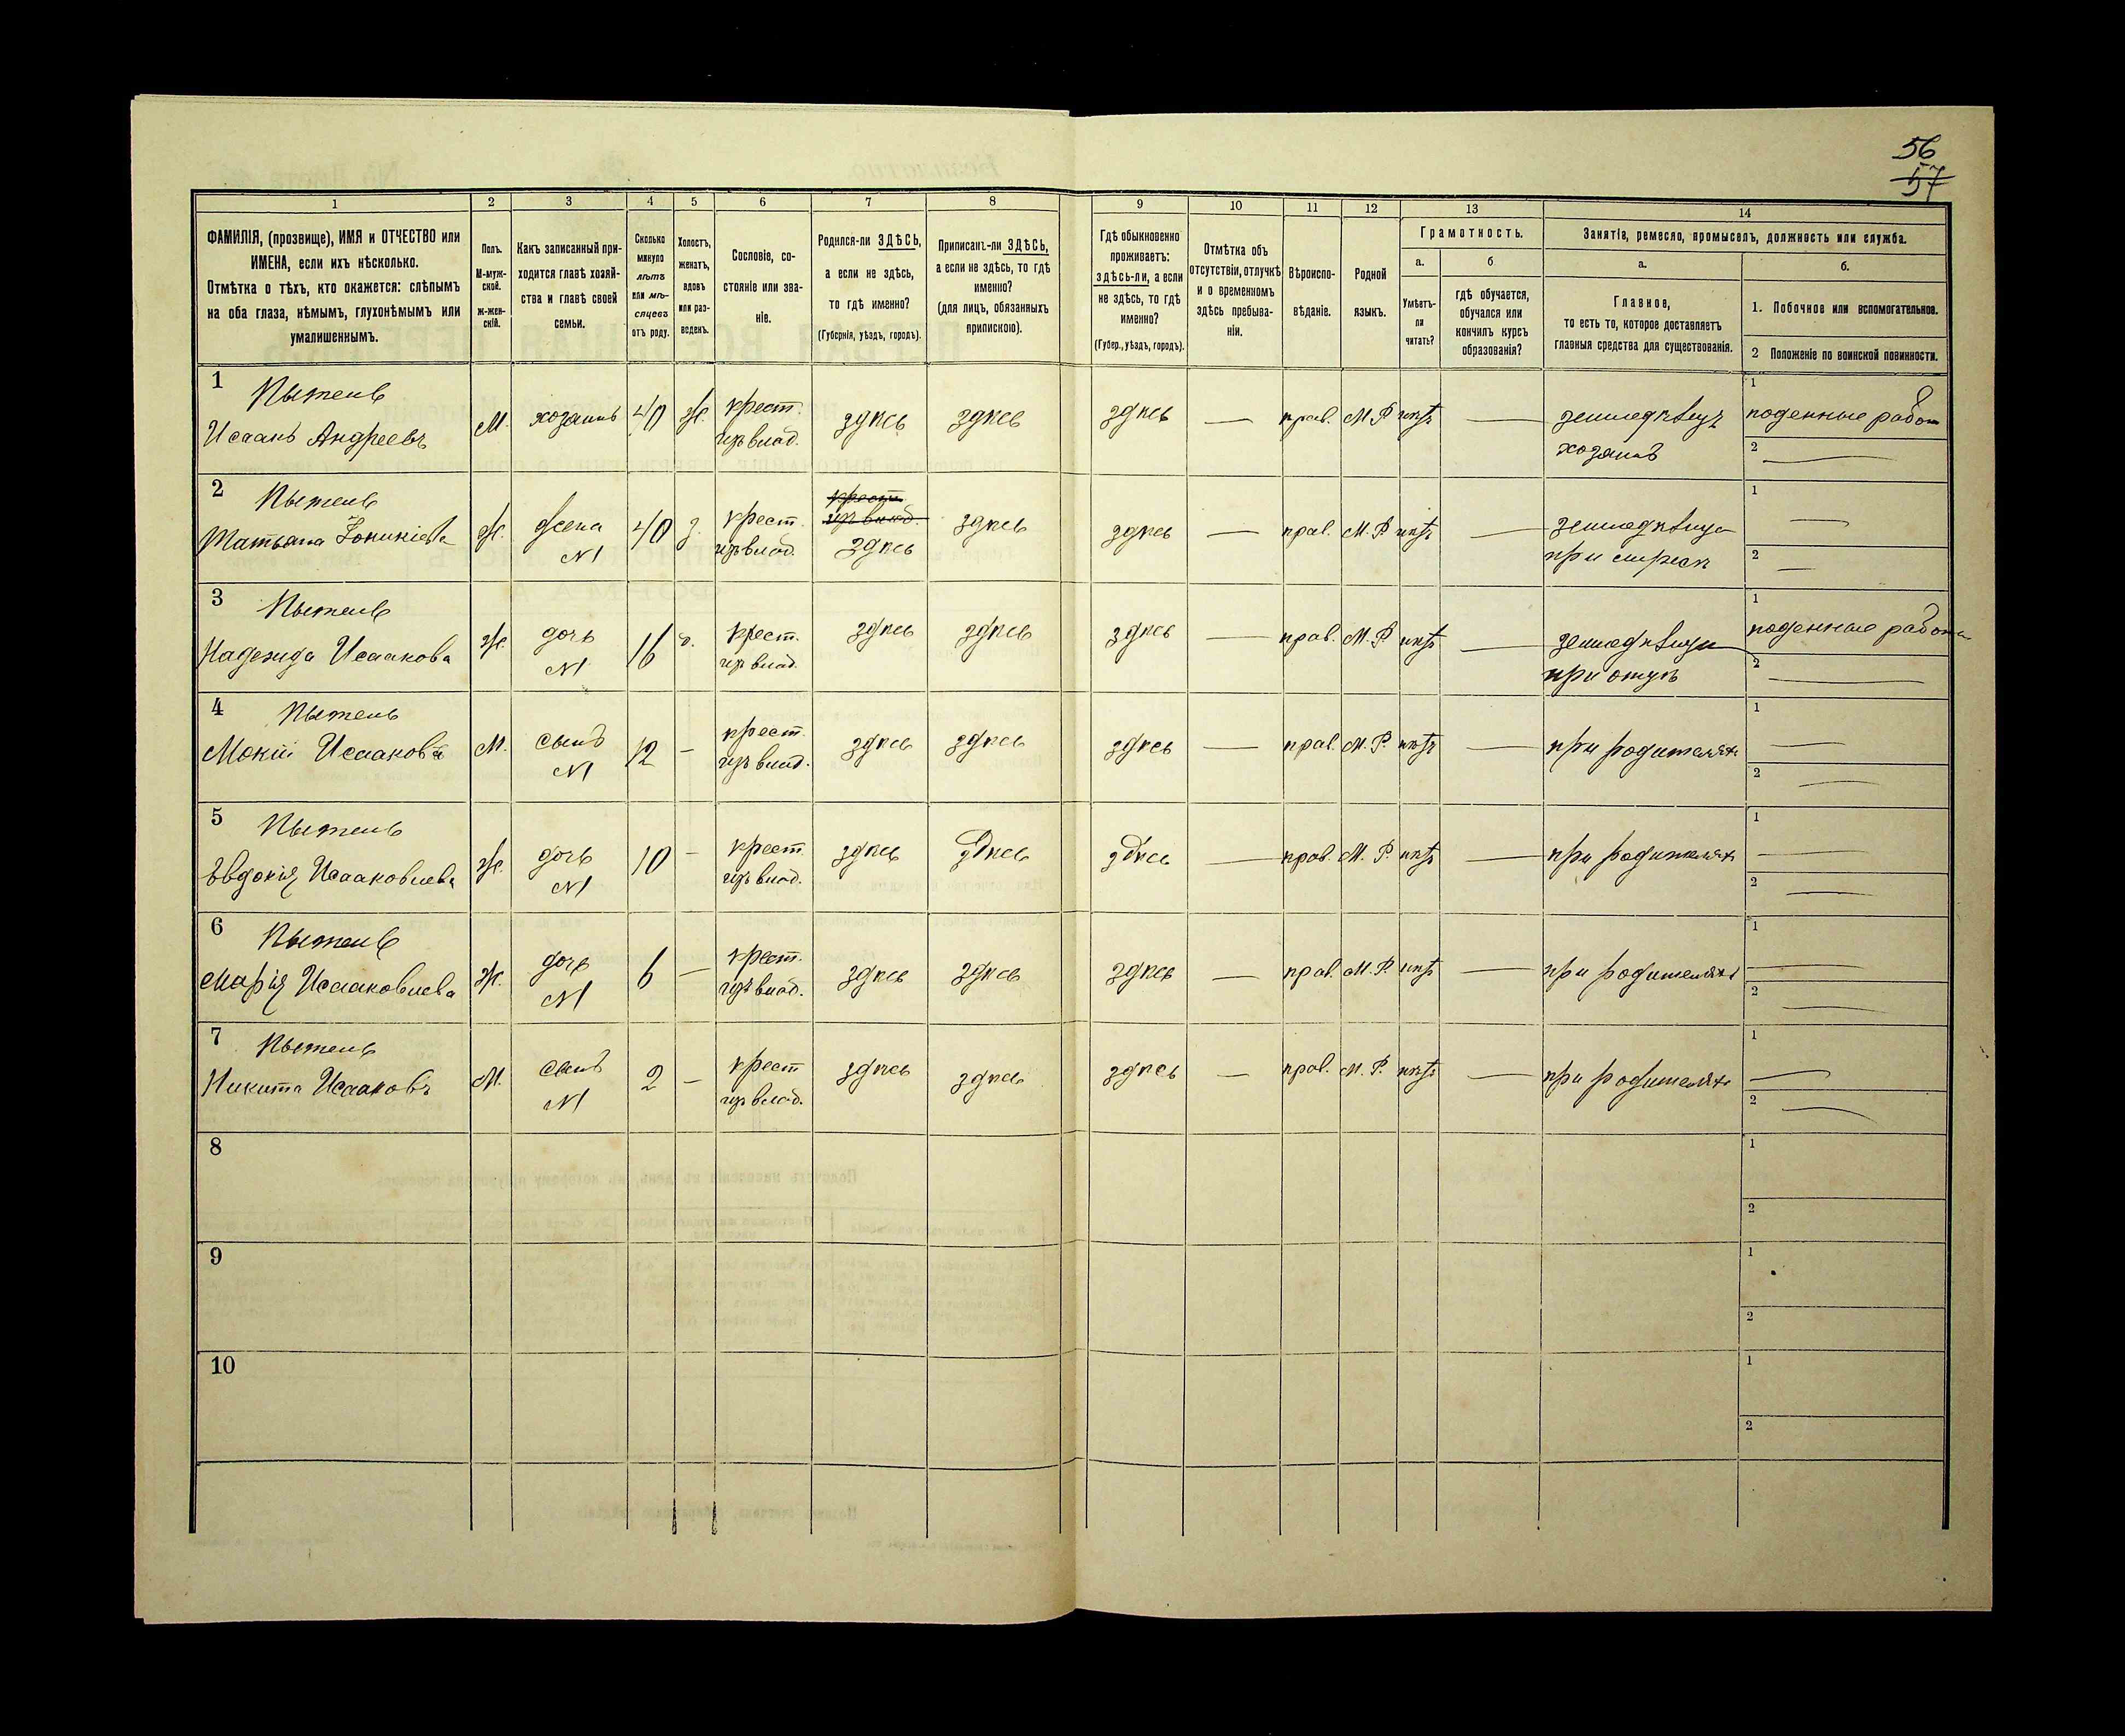 56
57
1 2 3 4 5 6 7 8 9 10 11 12 13 14
ФАМИЛІЯ, (прозвище), ИМЯ и ОТЧЕСТВО или
ИМЕНА, если ихъ нѣсколько.
Отмѣтка о тѣхъ, кто окажется: слѣпымъ
на оба глаза, нѣмымъ, глухонѣмымъ или
умалишеннымъ.
Полъ.
М-муж-
ской.
ж-жен-
скій.
Какъ записанный при-
ходится главѣ хозяй-
ства и главѣ своей
семьи.
Сколько
минуло
лѣтъ
или мѣ-
сяцевъ
отъ роду.
Холостъ,
женатъ,
вдовъ
или раз-
веденъ.
Сословіе, со-
стояніе или зва-
ніе.
Родился-ли ЗДѢСЬ,
а если не здѣсь,
то гдѣ именно?
(Губернія, уѣздъ, городъ).
Приписанъ-ли ЗДѢСЬ,
а если не здѣсь, то гдѣ
именно?
(для лицъ, обязанныхъ
припискою).
Гдѣ обыкновенно
проживаетъ:
здѣсь-ли, а если
не здѣсь, то гдѣ
именно?
(Губер., уѣздъ, городъ).
Отмѣтка объ
отсутствіи, отлучкѣ
и о временномъ
здѣсь пребыва-
ніи.
Вѣроиспо-
вѣданіе.
Родной
языкъ.
Грамотность.
а.
Умѣетъ-
ли
читать?
б
гдѣ обучается,
обучался или
кончилъ курсъ
образованія?
Занятія, ремесло, промыселъ, должность или служба.
а.
Главное,
то есть то, которое доставляетъ
главныя средства для существованія.
б.
1. Побочное или вспомогательное.
2 Положеніе по воинской повинности.
1
Исаакъ Андреевъ
М. хозяинъ 40 ж. крест. здѣсь здѣсь здѣсь — прав. М.Р нѣтъ — земледѣлецъ 1 поденные
изъ влад. хозяинъ 2 —
2
Татьяна
ж. жена 40 з. крест. крест. здѣсь здѣсь — прав. М.Р. нѣтъ — 1 —
N1 изъ влад. изъ влад. при 2 —
здѣсь
3
Надежда Исаакова
ж. дочь 16 крест. здѣсь здѣсь здѣсь — прав. М.Р. нѣтъ — 1 поденные
N1 изъ влад. при отцѣ 2 —
4
Мокій Исааковъ
М. сынъ 12 — крест. здѣсь здѣсь здѣсь — прав. М.Р. нѣтъ — при родителяхъ 1 —
N1 изъ влад. 2 —
5
Евдокія Исааковиева
ж. дочь 10 — крест. здѣсь здѣсь здѣсь — прав. М.Р. нѣтъ — при родителяхъ 1 —
N1 изъ влад. 2 —
6
Марія Исааковиева
ж. дочь 6 — крест. здѣсь здѣсь здѣсь — прав. М.Р. нѣтъ — при родителяхъ 1 —
N1 изъ влад. 2 —
7
Никита Исааковъ
М. сынъ 2 — крест здѣсь здѣсь здѣсь — прав. М.Р. нѣтъ — при родителяхъ 1 —
N1 изъ влад. 2 —
8 1
2
9 1
2
10 1
2